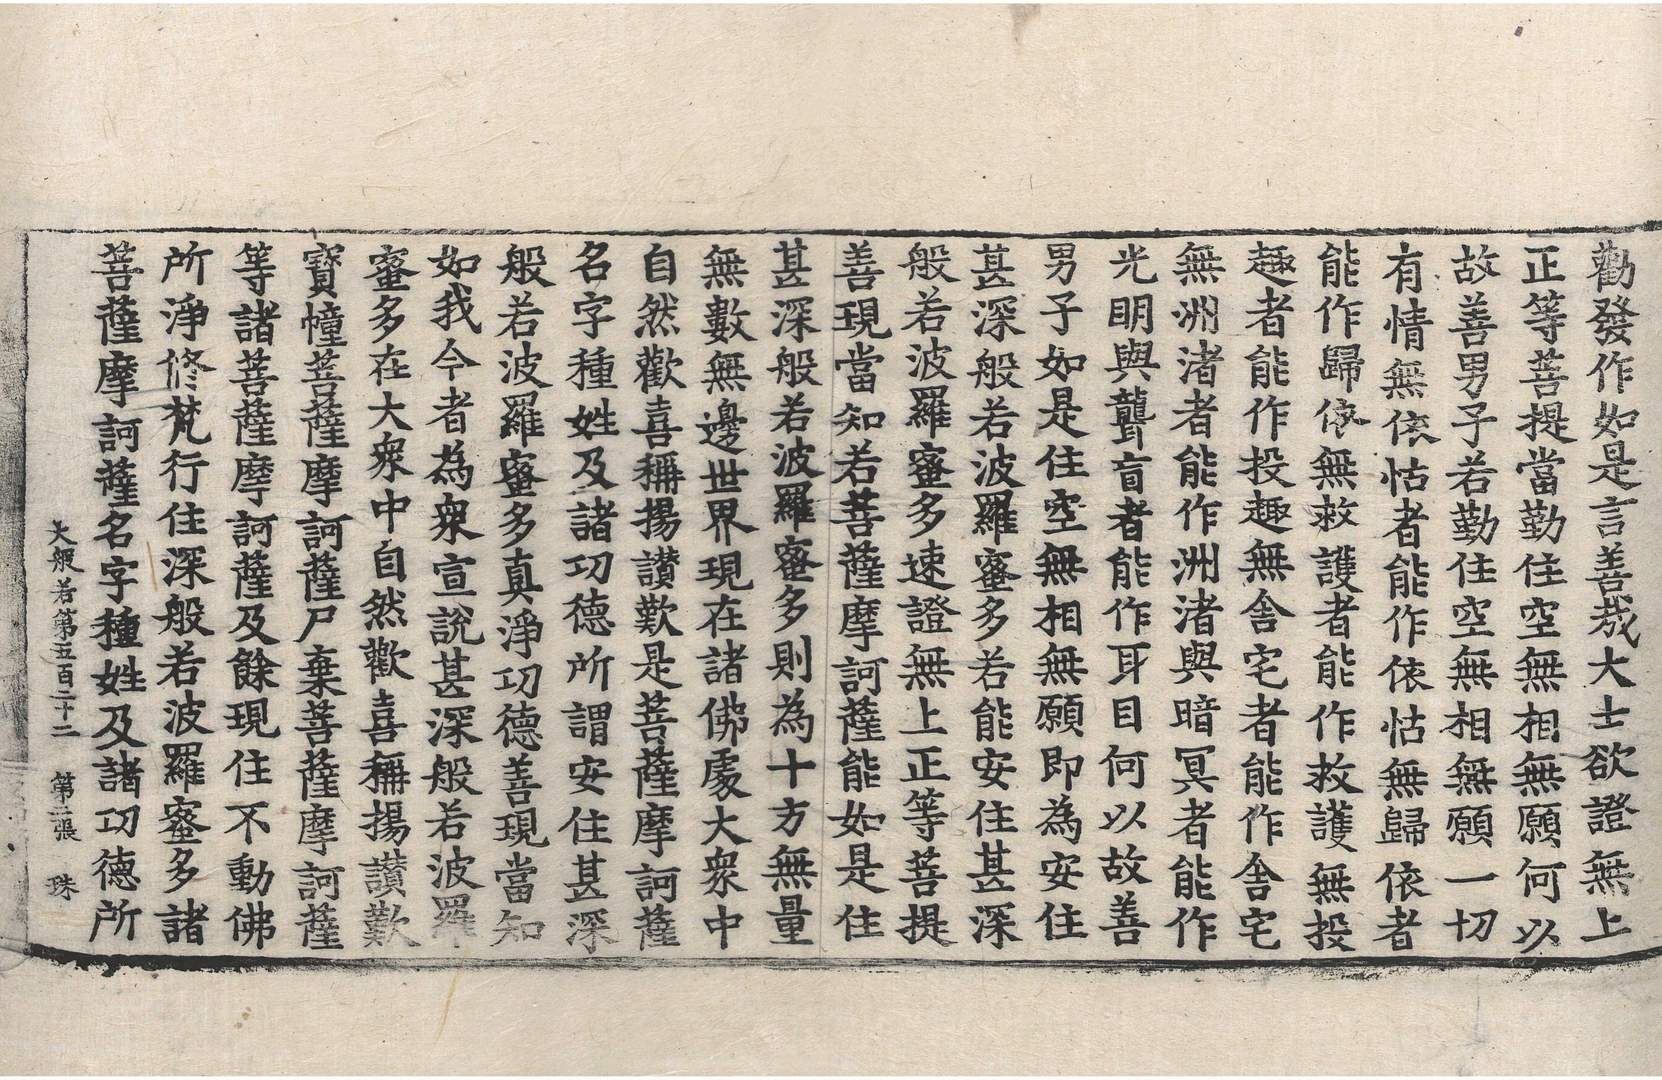 勸發作如是言善哉大士欲證無上
正等菩提當勤住空無相無願何以
故善男子若勤住空無相無願一切
有情無依怙者能作依怙無歸依者
能作歸依無救護者能作救護無投
趣者能作投趣無舍宅者能作舍宅
無洲渚者能作洲渚與暗冥者能作
光明與聾盲者能作耳目何以故善
男子如是住空無相無願即為安住
甚深般若波羅蜜多若能安住甚深
般若波羅蜜多速證無上正等菩提
善現當知若菩薩摩訶薩能如是住
甚深般若波羅蜜多則為十方無量
無數無邊世界現在諸佛處大衆中
自然歡喜稱揚讃歎是菩薩摩訶薩
名字種姓及諸功德所謂安住甚深
般若波羅蜜多真淨功德善現當知
如我今者為衆宣說甚深般若波羅
蜜多在大衆中自然歡喜稱揚讃歎
寶幢菩薩摩訶薩尸棄菩薩摩訶薩
等諸菩薩摩訶薩及餘現住不動佛
所淨修梵行住深般若波羅蜜多諸
菩薩摩訶薩名字種姓及諸功德所
大般若第五百二十二 第二張 珠